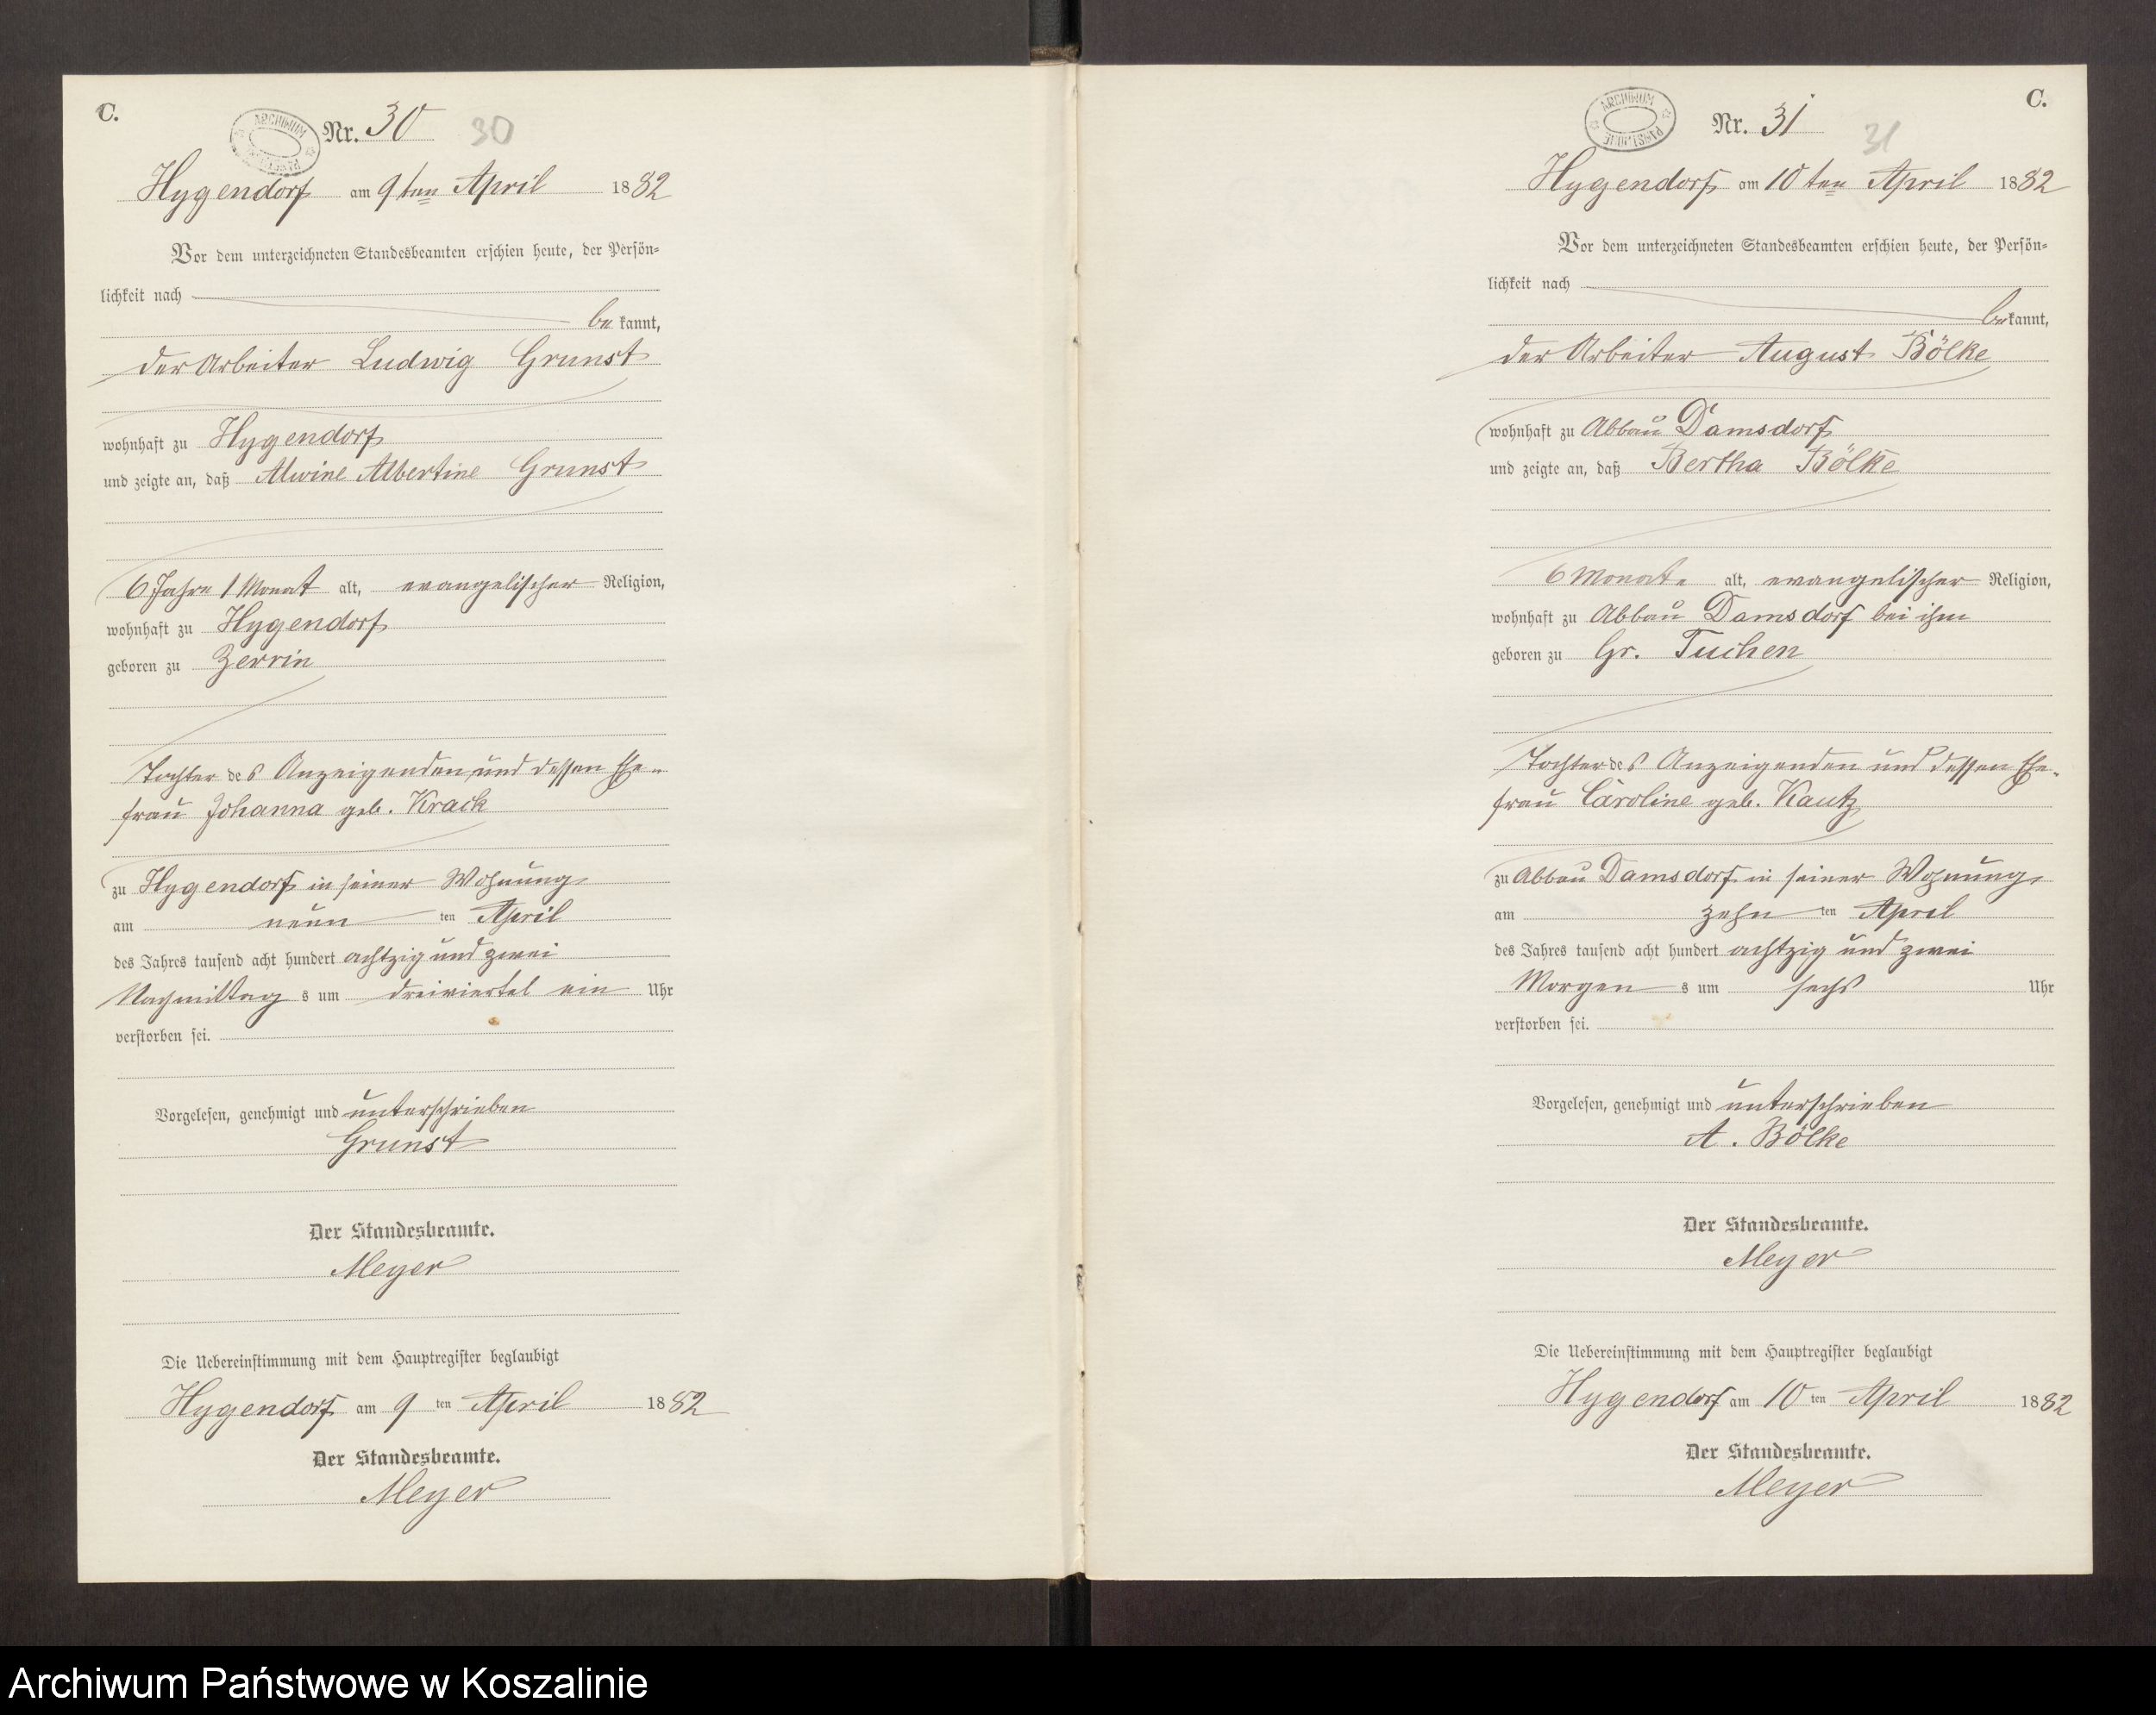 C.
ARCHIWUM PAŃSTWOWE
Nr. 30 30
Hygendorf am 9ten April 1882
Vor dem unterzeichneten Standesbeamten erschien heute, der Persön-
lichkeit nach
bekannt,
der Arbeiter Ludwig Grunst
wohnhaft zu Hygendorf
und zeigte an, daß Alwine Albertine Grunst
6 Jahre 1 Monat alt, evangelischer Religion,
wohnhaft zu Hygendorf
geboren zu Zerrin
Tochter des Anzeigenden und dessen Ehe-
frau Johanna geb. Krack
zu Hygendorf in seiner Wohnung
am neun ten April
des Jahres tausend acht hundert achtzig und zwei
Nachmittag s um dreiviertel ein Uhr
verstorben sei.
Vorgelesen, genehmigt und unterschrieben
Grunst
Der Standesbeamte.
Meyer
Die Uebereinstimmung mit dem Hauptregister beglaubigt
Hygendorf am 9 ten April 1882
Der Standesbeamte.
Meyer
C.
ARCHIWUM PAŃSTWOWE
Nr. 31 31
Hygendorf am 10ten April 1882
Vor dem unterzeichneten Standesbeamten erschien heute, der Persön-
lichkeit nach
bekannt,
der Arbeiter August Bölke
wohnhaft zu Abbau Damsdorf
und zeigte an, daß Bertha Bölke
6 Monate alt, evangelischer Religion,
wohnhaft zu Abbau Damsdorf bei ihm
geboren zu Gr. Tuchen
Tochter des Anzeigenden und dessen Ehe-
frau Caroline geb. Kautz
zu Abbau Damsdorf in seiner Wohnung
am zehn ten April
des Jahres tausend acht hundert achtzig und zwei
Morgen s um sechs Uhr
verstorben sei.
Vorgelesen, genehmigt und unterschrieben
A. Bölke
Der Standesbeamte.
Meyer
Die Uebereinstimmung mit dem Hauptregister beglaubigt
Hygendorf am 10 ten April 1882
Der Standesbeamte.
Meyer
Archiwum Państwowe w Koszalinie